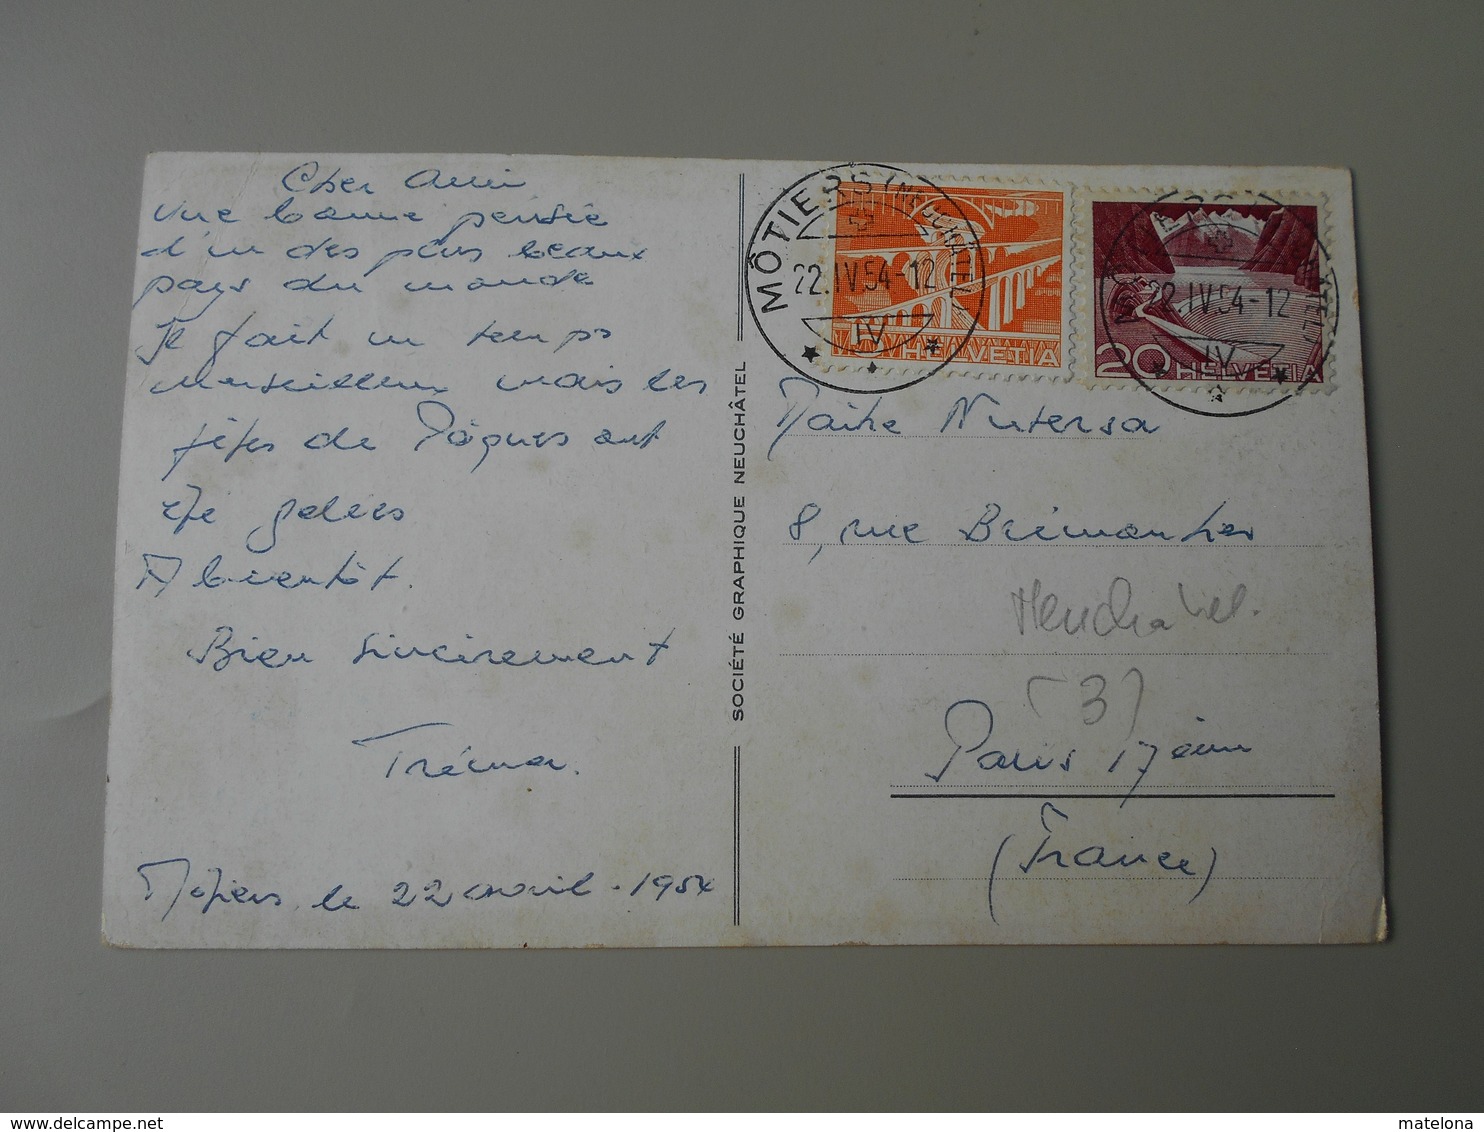 Cher Ami
une bonne pensée
d'un des plus beaux
pays du monde
Il fait un temps
merveilleux mais les
fêtes de Pâques ont
été gelées
A bientôt.
Bien sincèrement
Môtiers le 22 avril . 1954
SOCIÉTÉ GRAPHIQUE NEUCHÂTEL
MÔTIERS (NEUCHÂTEL)
22.IV.54-12
IV
HELVETIA
22.IV.54-12
IV
20 HELVETIA
Maître
8, rue Brémontier
Neuchâtel.
(3)
Paris 17 ème
(France)
delcampe.net
matelona